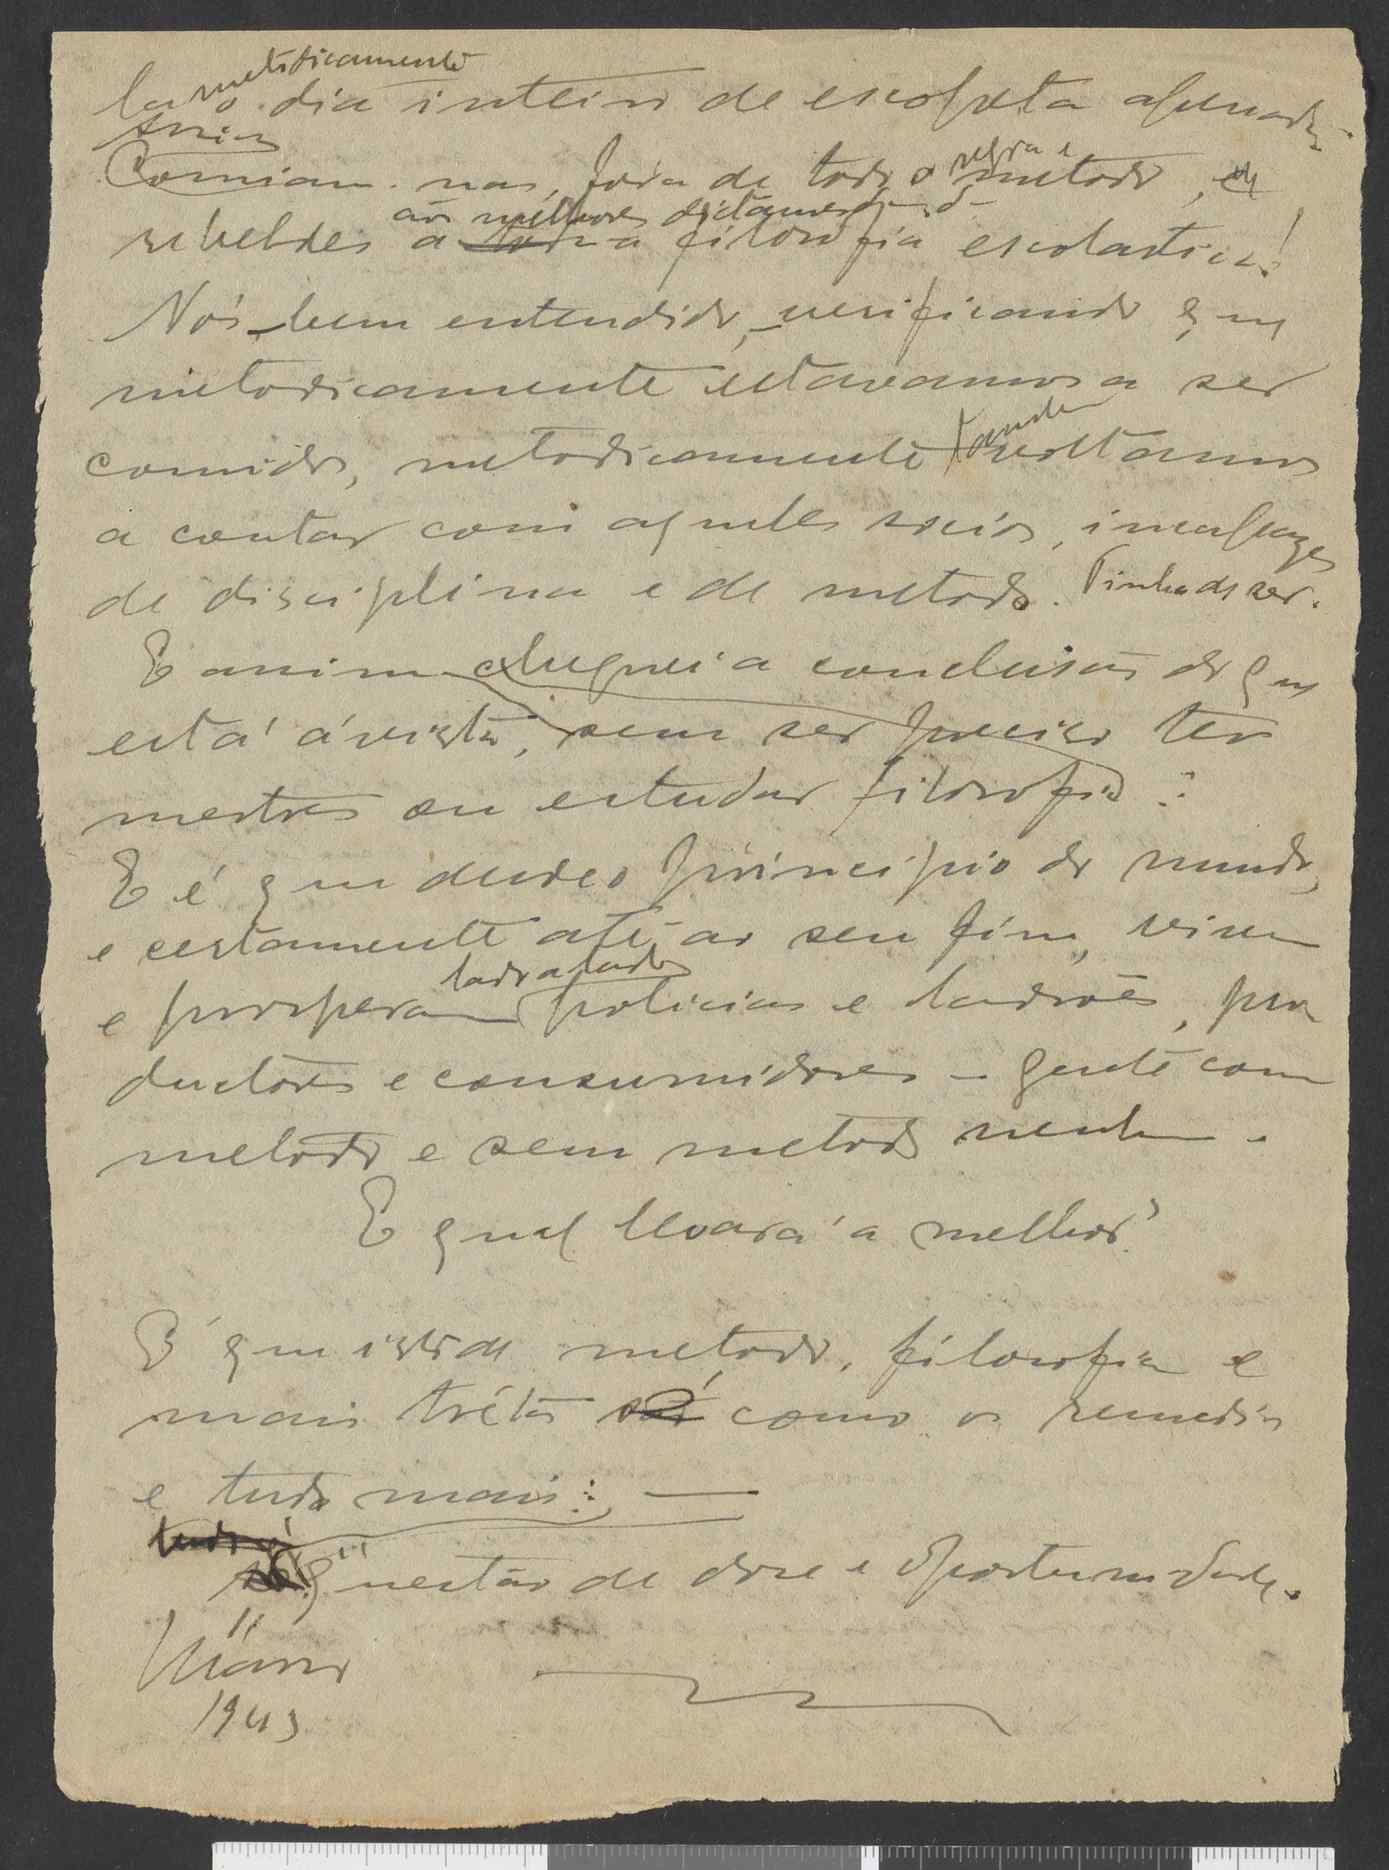 metodicamente
la o dia inteiro de escopeta aperrada.
assim
Comiam-nos, fóra de todo o regra e metodo, e
aos melhores dictames da
rebeldes a toda a filosofia escolastica!
Nós, bem entendido, verificando que
metodicamente estavamos a ser
comidos, metodicamente tambem voltamos
a contar com aqueles socios, incapazes
de disciplina e de metodo. Tinha de ser.
E assim cheguei a conclusão do que
está á vista, sem ser preciso ter
mestres ou estudar filosofia:
E é que desde o principio do mundo,
e certamente até ao seu fim, vivem
lado a lado
e prosperam policias e ladrões, pro
ductores e consumidores – gente com
metodo e sem metodo nenhum.
E qual levará a melhor?
É que isto de metodo, filosofia e
mais trétas só como os remedios
e tudo mais: —
tudo é
questão de dose e oportunidade.
Março
1943